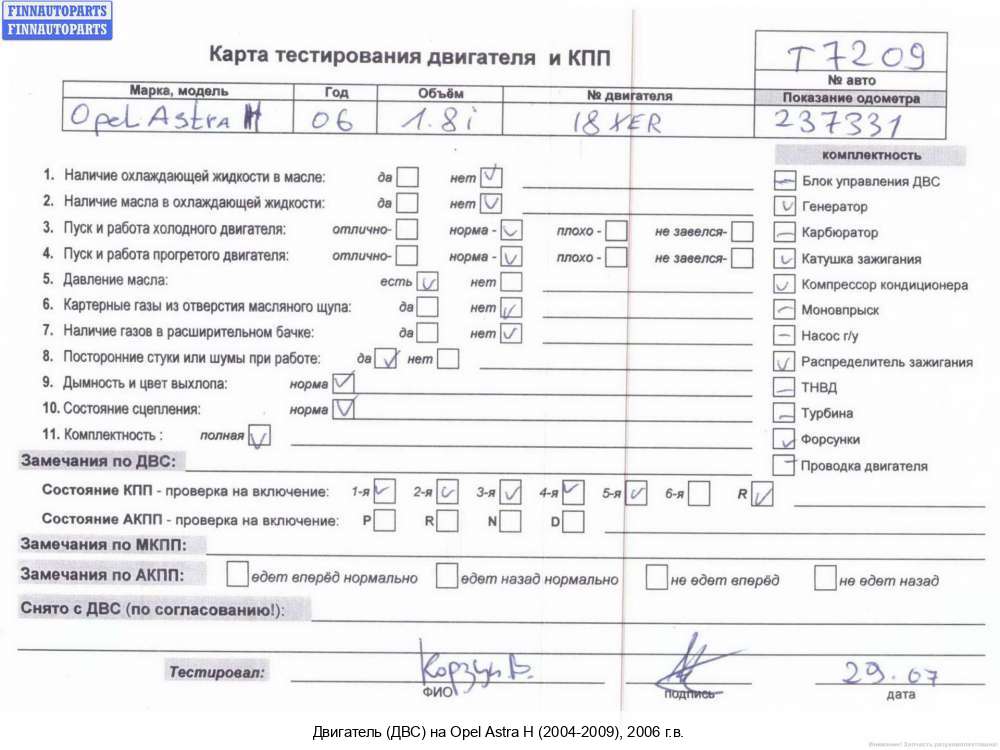 FINNAUTOPARTS
FINNAUTOPARTS
Карта тестирования двигателя и КПП
T7209
№ авто
Марка, модель Год Объём № двигателя Показание одометра
Opel Astra H 06 1.8i 18XER 237331
комплектность
1. Наличие охлаждающей жидкости в масле: да нет
Блок управления ДВС
2. Наличие масла в охлаждающей жидкости: да нет
Генератор
3. Пуск и работа холодного двигателя: отлично- норма - плохо - не завелся-
Карбюратор
4. Пуск и работа прогретого двигателя: отлично- норма - плохо - не завелся-
Катушка зажигания
5. Давление масла: есть нет
Компрессор кондиционера
6. Картерные газы из отверстия масляного щупа: да нет
Моновпрыск
7. Наличие газов в расширительном бачке: да нет
Насос г/у
8. Посторонние стуки или шумы при работе: да нет
Распределитель зажигания
9. Дымность и цвет выхлопа: норма
ТНВД
10. Состояние сцепления: норма
Турбина
11. Комплектность : полная
Форсунки
Замечания по ДВС:
Проводка двигателя
Состояние КПП - проверка на включение: 1-я 2-я 3-я 4-я 5-я 6-я R
Состояние АКПП - проверка на включение: P R N D
Замечания по МКПП:
Замечания по АКПП: едет вперёд нормально едет назад нормально не едет вперёд не едет назад
Снято с ДВС (по согласованию!):
Тестировал: Корзун В. 29.07
ФИО подпись дата
Двигатель (ДВС) на Opel Astra H (2004-2009), 2006 г.в.
Внимание! Запчасть разукомплектована!